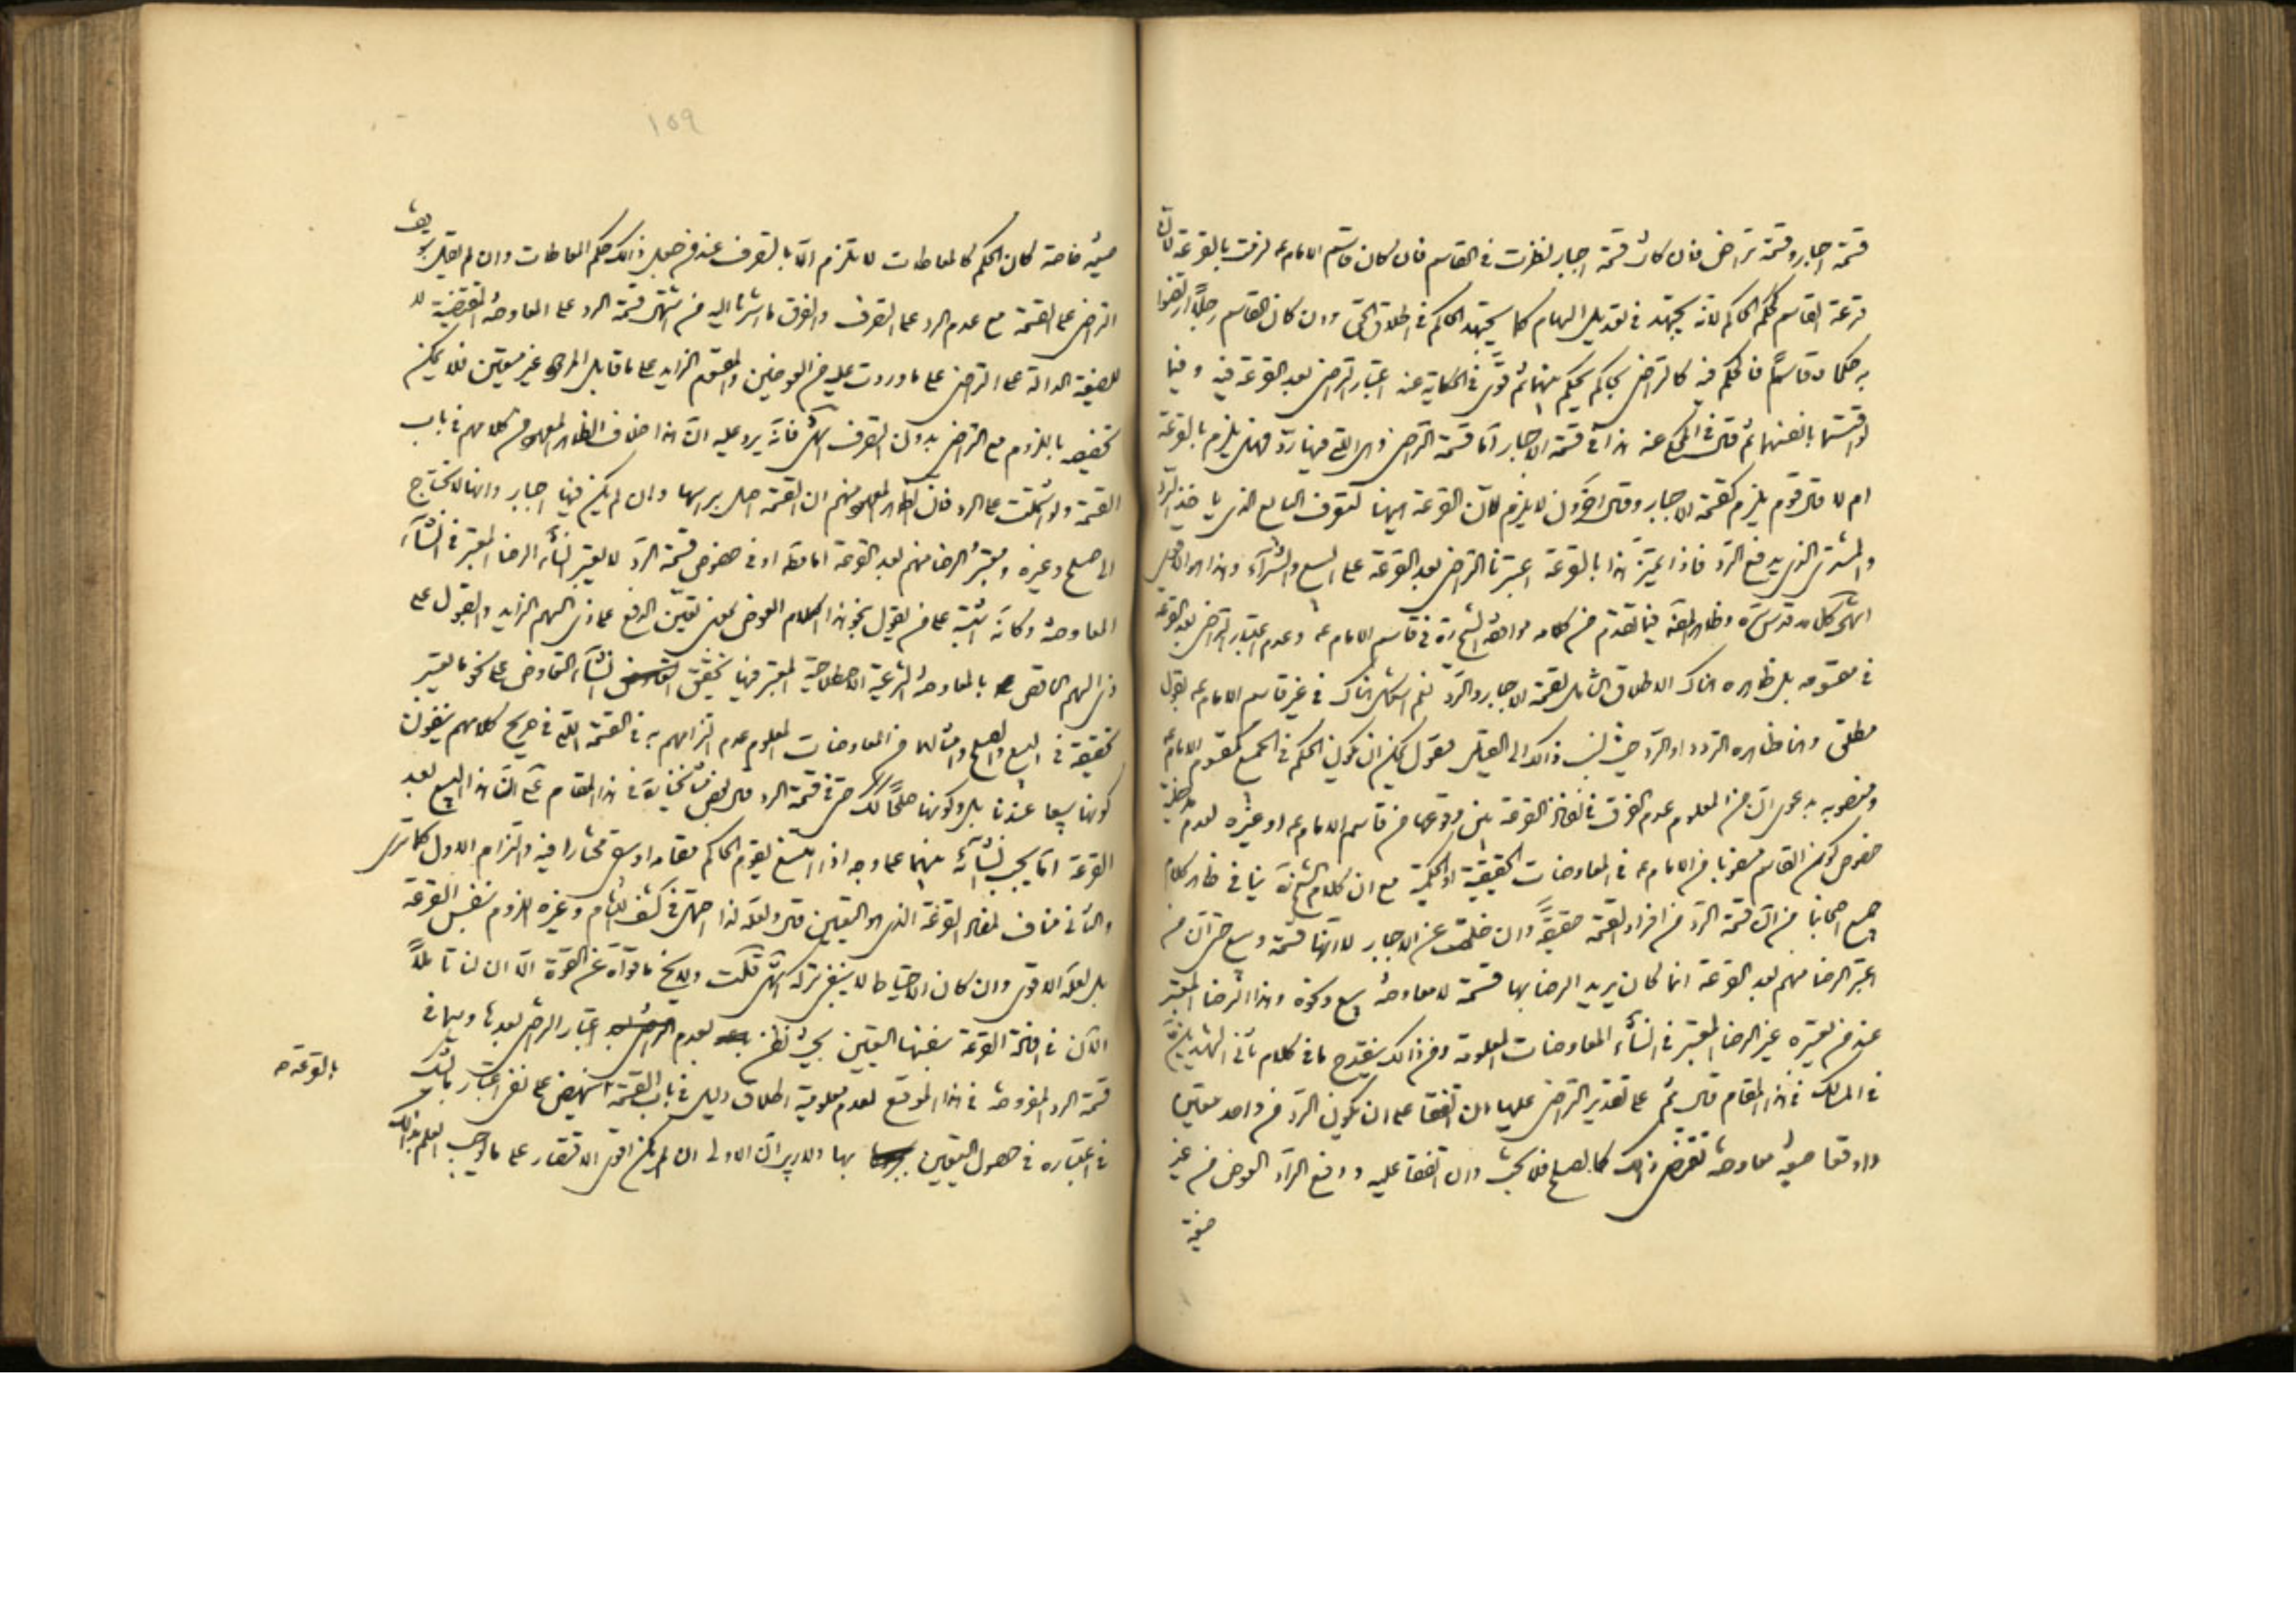 قسمة اجبار وقسمة تراض فان كانت قسمة اجبار نظرت في القاسم فان كان قاسم الامام ع لزمت بالقرعة لان
قرعة القاسم كحكم الحاكم لانه يجتهد في تعديل السهام كما يجتهد الحاكم في اطلاق الحق وان كان القاسم رجلا ارتضوا
به حكما وقاسما فالحكم فيه كالتراضي بحاكم يحكم بينهما ثم قوى في الحكاية عنه اعتبار التراضي بعد القرعة فيه وفيما
لو اقتسما بانفسهما ثم قال في المحكي عنه هذا في قسمة الاجبار اما قسمة التراضي وهي التي فيها رد فهل يلزم بالقرعة
ام لا قال قوم يلزم كقسمة الاجبار وقال اخرون لا يلزم لان القرعة ههنا ليعرف البايع الذي ياخذ الرد
والمشتري الذي يدفع الرد فاذا تميز هذا بالقرعة اعتبرنا التراضي بعد القرعة على البيع والشراء وهذا هو الاقوى
انتهى كلامه قدس سره وظاهر المصنف فيما تقدم من كلامه موافقة الشيخ ره في قاسم الامام ع وعدم اعتبار التراضي بعد القرعة
في مقسومه بل ظاهره هناك الاطلاق الشامل لقسمة الاجبار والرد نعم استشكل هناك في غير قاسم الامام ع بقول
مطلق وهنا ظاهره التردد او الرد حيث نسب ذلك الى القيل فنقول يمكن ان يكون الحكم في الجميع كمقسوم الامام ع
ومنصوبه بدعوى ان من المعلوم عدم الفرق في نفاذ القرعة بين وقوعها من قاسم الامام ع او غيره لعدم مدخلية
خصوص كون القاسم منصوبا من الامام ع في المعاوضات الحقيقية او الحكمية مع ان كلام الشيخ ره ينافي ظاهر كلام
جميع اصحابنا من ان قسمة الرد من افراد القسمة حقيقة وان خلت عن الاجبار لا انها قسمة وبيع حتى ان من
اعتبر الرضا منهم بعد القرعة انما كان يريد الرضا بها قسمة لا معاوضة بيع ونحوه وهذا الرضا المعتبر
عند من يعتبره غير الرضا المعتبر في انشاء المعاوضات المعلومة ومن ذلك ينقدح ما في كلام ثاني الشهيدين ره
في المسالك في هذا المقام قال ثم على تقدير التراضي عليها ان اتفقا على ان يكون الرد من واحد معين
واوقعا صيغة معاوضة تقتضي ذلك كالصلح فلا بحث وان اتفقا عليه ودفع الراد العوض من غير
صيغة
١٥٩
صيغة خاصة كان الحكم كالمعاطات لا يلزم الا بالتصرف عند من جعل ذلك حكم المعاطات وان لم نقل
التراضي على القسمة مع عدم الرد على التصرف والفرق ما اشرنا اليه من اشتمال قسمة الرد على المعاوضة المقتضية
للصيغة الدالة على التراضي على ما وردت عليه من العوضين والمقسوم الزايد على ما قابل المردود غير معين فلا يمكن
تخصيصه باللزوم مع التراضي بدون التصرف انتهى فانه يرد عليه ان هذا خلاف الظاهر المعلوم من كلامهم في باب
القسمة ولو اشتملت على الرد فان الظاهر المعلوم منهم ان القسمة اصل براسها وان لم يكن فيها اجبار وانها لا تحتاج
الى صلح وغيره ومعتبر الرضا منهم بعد القرعة اما مطلقا او في خصوص قسمة الرد لا يعتبر انشاء الرضا المعتبر في انشاء
المعاوضة وكانه اشتبه على من يقول بنحو هذا الكلام العوض بمعنى تعيين الدفع على ذي السهم الزايد والقبول على
ذي السهم الناقص بالمعاوضة الشرعية الاصطلاحية المعتبر فيها تحقق انشاء التعاوض على نحو ما يعتبر
تحقيقه في البيع والصلح وامثالهما من المعاوضات المعلوم عدم التزامهم به في القسمة التي في صريح كلامهم ينفون
كونها بيعا عندنا بل وكونها صلحا كذلك حتى في قسمة الرد قال بعض مشايخنا ره في هذا المقام على ان هذا البيع بعد
القرعة اما يجب انشائه بينهما على وجه اذا امتنع يقوم الحاكم مقامه او يبقى مختارا فيه والتزام الاول كما ترى
والثاني مناف لمفاد القرعة الذي هو التعيين قال ولعله لذا احتمل في كشف اللثام وغيره اللزوم بنفس القرعة
بل لعله الاقوى وان كان الاحتياط لا ينبغي تركه انتهى قلت ولا يخ ما قواه عن القوة الا ان لنا تاملا
الان في افادة القرعة بنفسها التعيين بحيث نظن بعدم اعتبار الرضى بعدها وسيما في
قسمة الرد المفروضة في هذا الموقع لعدم معلومية اطلاق دليل في باب القسمة ينهض على نفي اعتبار ما يشك
في اعتباره في حصول التعيين بها والا ريب ان الاولى ان لم يكن اقوى الاقتصار على ما يوجب العلم بذلك
بالقرعة صح